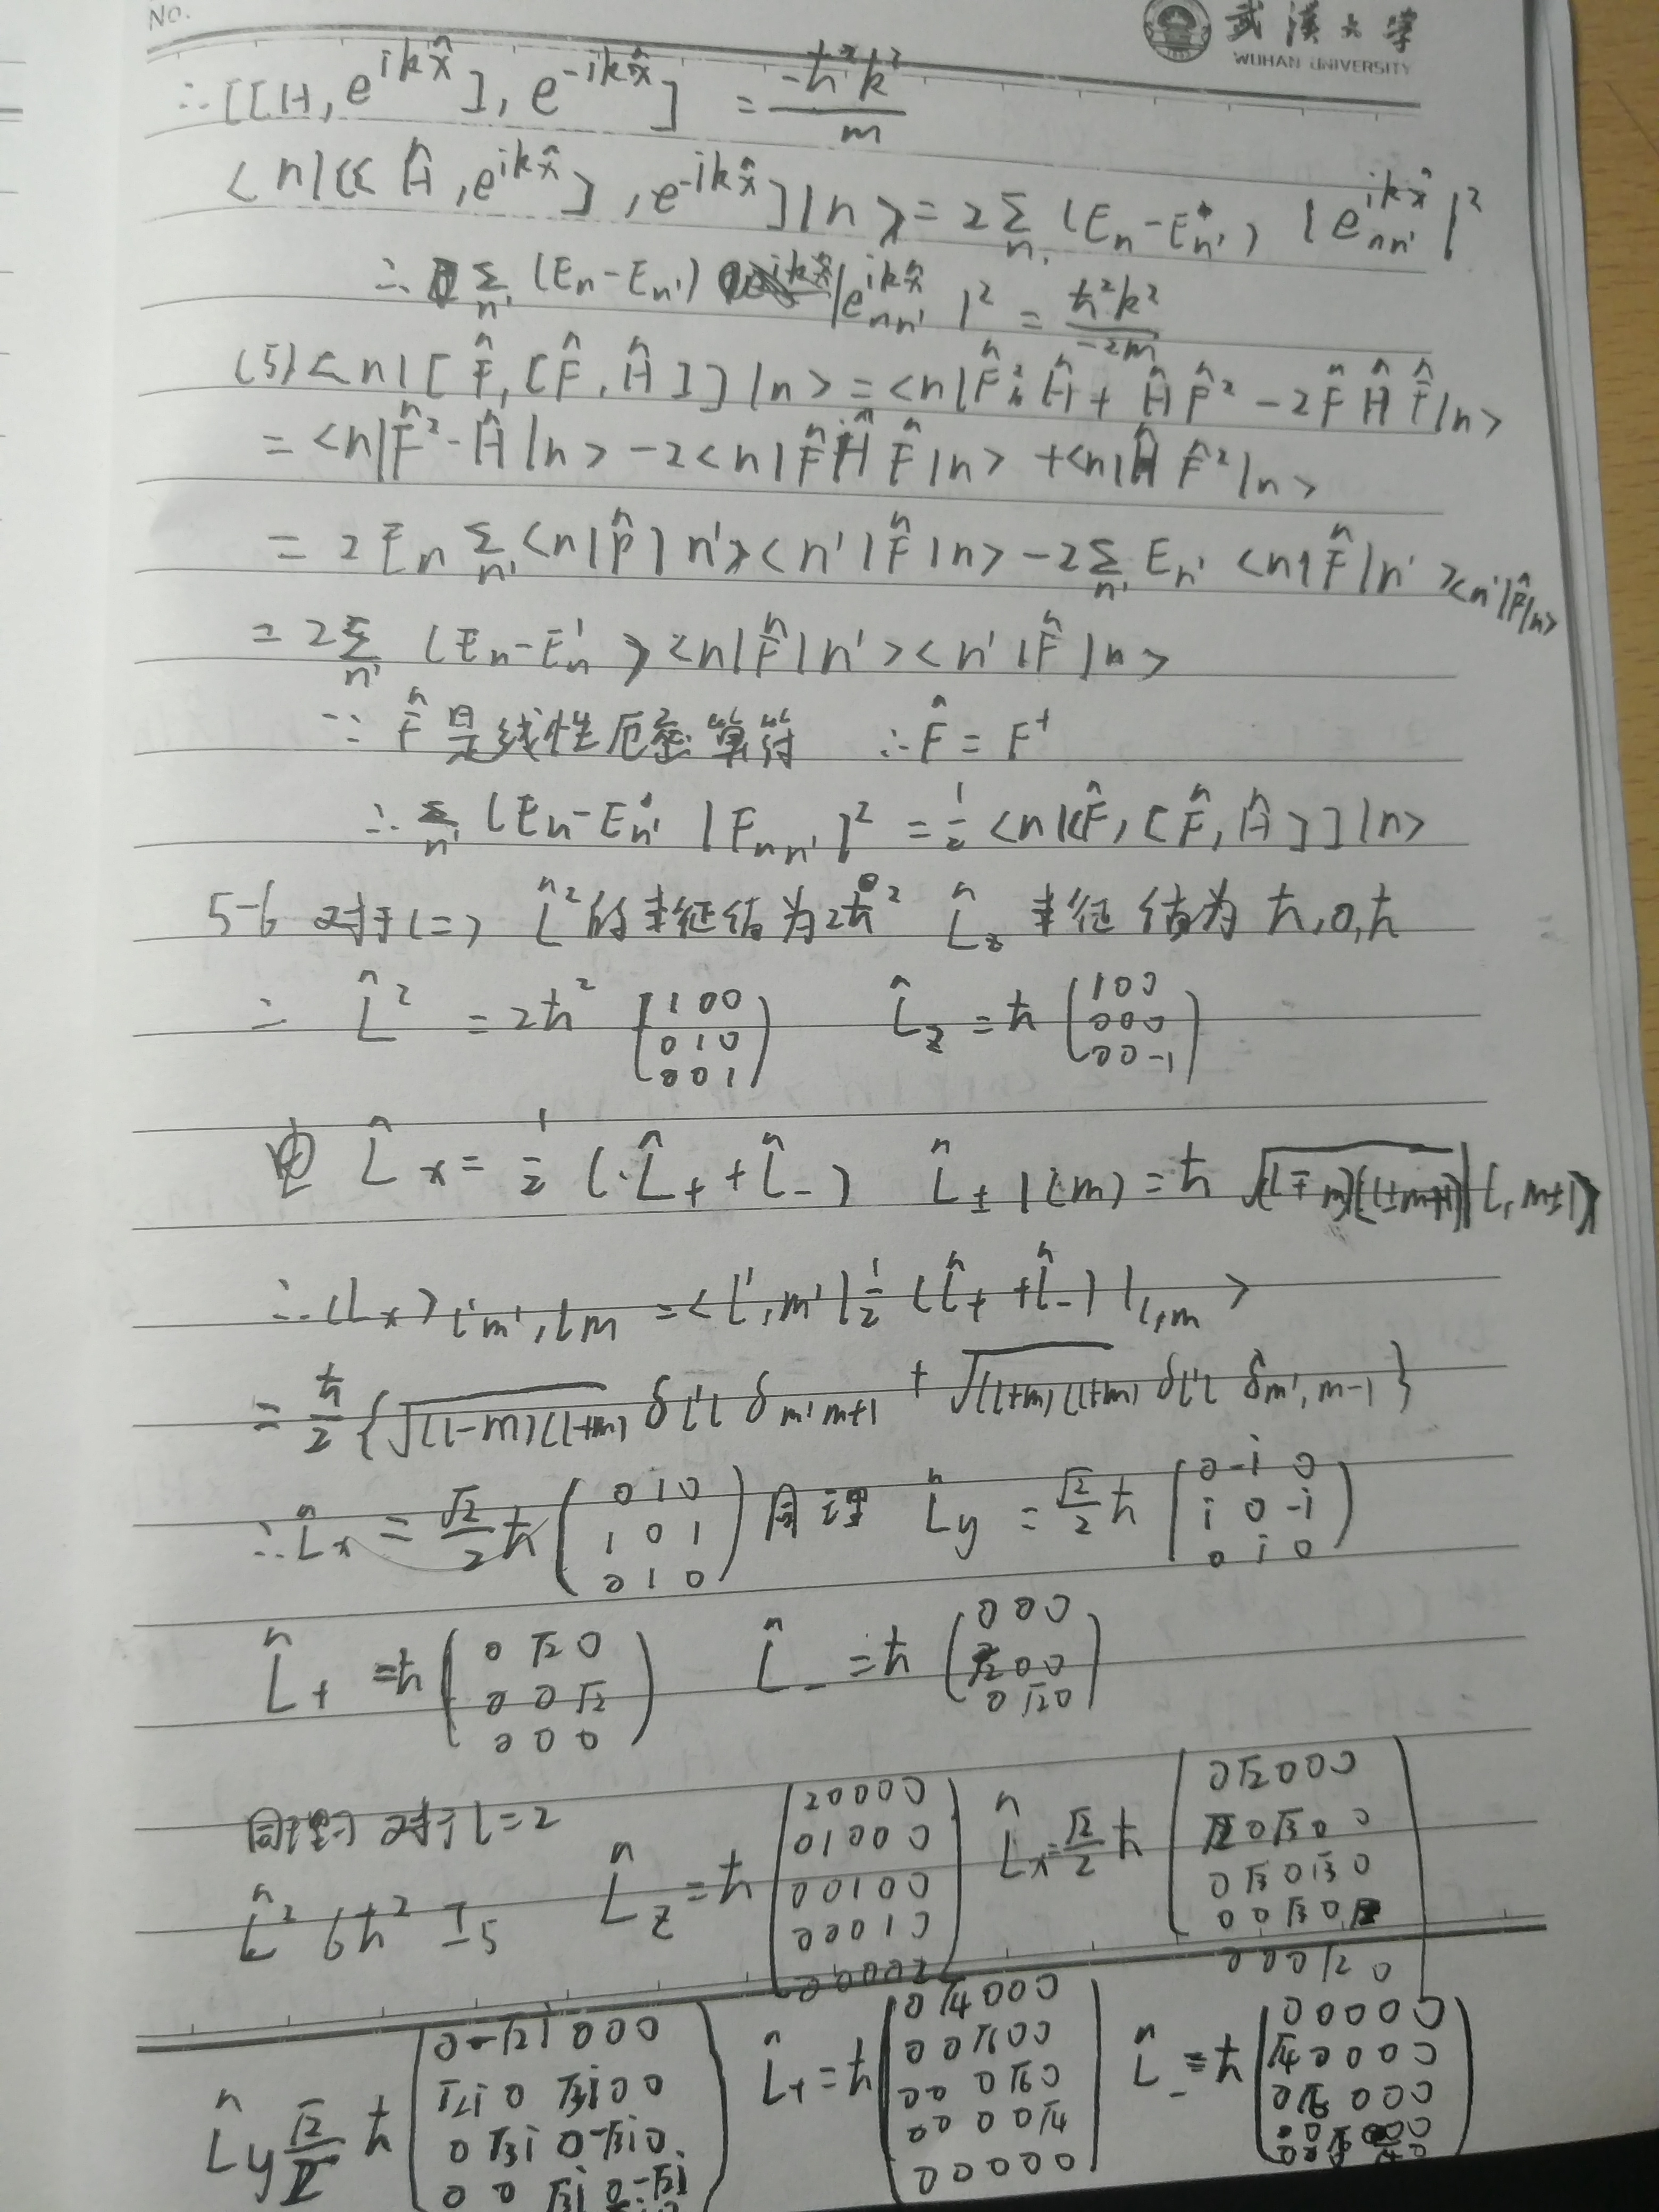 No.
武漢大学
WUHAN UNIVERSITY
∴ [[H, e^{ikx̂}], e^{-ikx̂}] = -ħ²k²/m
<n|[[Ĥ, e^{ikx̂}], e^{-ikx̂}]|n> = 2Σ_{n'} (E_n - E_{n'}) |e^{ikx̂}_{nn'}|²
∴ Σ_{n'} (E_n - E_{n'}) |e^{ikx̂}_{nn'}|² = ħ²k²/-2m
(5) <n|[F̂, [F̂, Ĥ]]|n> = <n|F̂²Ĥ + ĤF̂² - 2F̂ĤF̂|n>
= <n|F̂²·Ĥ|n> - 2<n|F̂ĤF̂|n> + <n|ĤF̂²|n>
= 2E_n Σ_{n'} <n|F̂|n'><n'|F̂|n> - 2Σ_{n'} E_{n'} <n|F̂|n'><n'|F̂|n>
= 2Σ_{n'} (E_n - E_n') <n|F̂|n'><n'|F̂|n>
∵ F̂是线性厄密算符 ∴ F̂ = F⁺
∴ Σ_{n'} (E_n - E_{n'} |F_{nn'}|² = 1/2 <n|[F̂, [F̂, Ĥ]]|n>
5-6 对于l=1 L̂²的本征值为2ħ² L̂_z 本征值为 ħ,0,ħ
= L̂² = 2ħ² (1 0 0; 0 1 0; 0 0 1) L̂_z = ħ (1 0 0; 0 0 0; 0 0 -1)
由 L̂_x = 1/2 (L̂_+ + L̂_-) L̂_± |l m> = ħ √(l∓m)(l±m+1) |l, m±1>
∴ (L_x)_{l'm', lm} = <l', m'|1/2 (L̂_+ + L̂_-)|l,m>
= ħ/2 {√(l-m)(l+m) δ_{l'l} δ_{m'm+1} + √(l+m)(l+m) δ_{l'l} δ_{m',m-1}}
∴ L̂_x = √2/2 ħ (0 1 0; 1 0 1; 0 1 0) 同理 L̂_y = √2/2 ħ (0 -i 0; i 0 -i; 0 i 0)
L̂_+ = ħ (0 √2 0; 0 0 √2; 0 0 0) L̂_- = ħ (0 0 0; √2 0 0; 0 √2 0)
同理 对于l=2
L̂² 6ħ² I_5 L̂_z = ħ (2 0 0 0 0; 0 1 0 0 0; 0 0 1 0 0; 0 0 0 1 0; 0 0 0 0 2) L̂_x = √2/2 ħ (0 √2 0 0 0; √2 0 √3 0 0; 0 √3 0 √3 0; 0 0 √3 0 √2; 0 0 0 √2 0)
L̂_y √2/2 ħ (0 -√2i 0 0 0; √2i 0 √3i 0 0; 0 √3i 0 -√3i 0; 0 0 √3i 0 -√2i L̂_+ = ħ (0 √4 0 0 0; 0 0 √6 0 0; 0 0 0 √6 0; 0 0 0 0 √4; 0 0 0 0 0) L̂_- = ħ (0 0 0 0 0; √4 0 0 0 0; 0 √6 0 0 0;